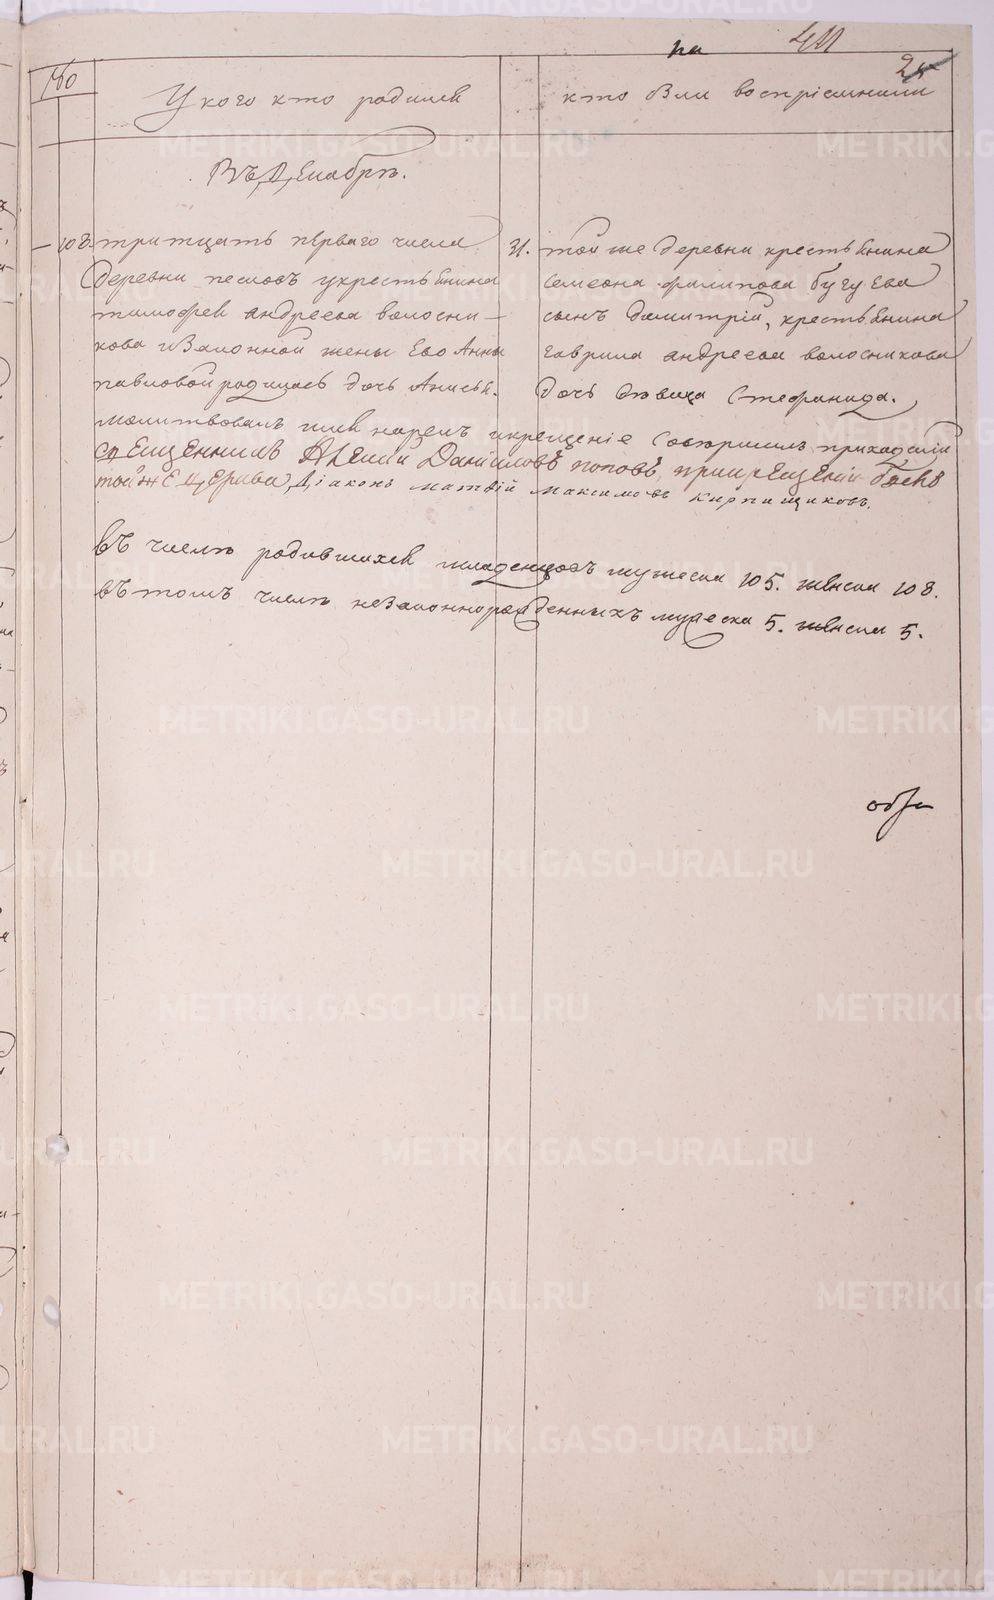 на 411
24
№ У кого кто родился кто был воспріемники
Въ Декабрѣ.
108. тритцать перваго числа
деревни песковъ укрестьянина
тимофея андреева волосни-
кова изаконной жены Ево Анны
павловой родилась дочь Анисья.
31. той же деревни крестьянина
семеона филипова бугуева
сынъ димитрій, крестьянина
гаврила андреева волосникова
дочь дѣвица Стефанида.
молитвовалъ имя нарекъ икрещеніе Совершилъ приходскій
священникъ Данииловъ поповъ, прикрещеніи былъ
тойже церкви діаконъ матвій максимовъ кирпищиковъ.
въ числѣ родившихся младенцовъ мужеска 105. женска 108.
въ томъ числѣ незаконнорожденныхъ мужеска 5. женска 5.
METRIKI.GASO-URAL.RU